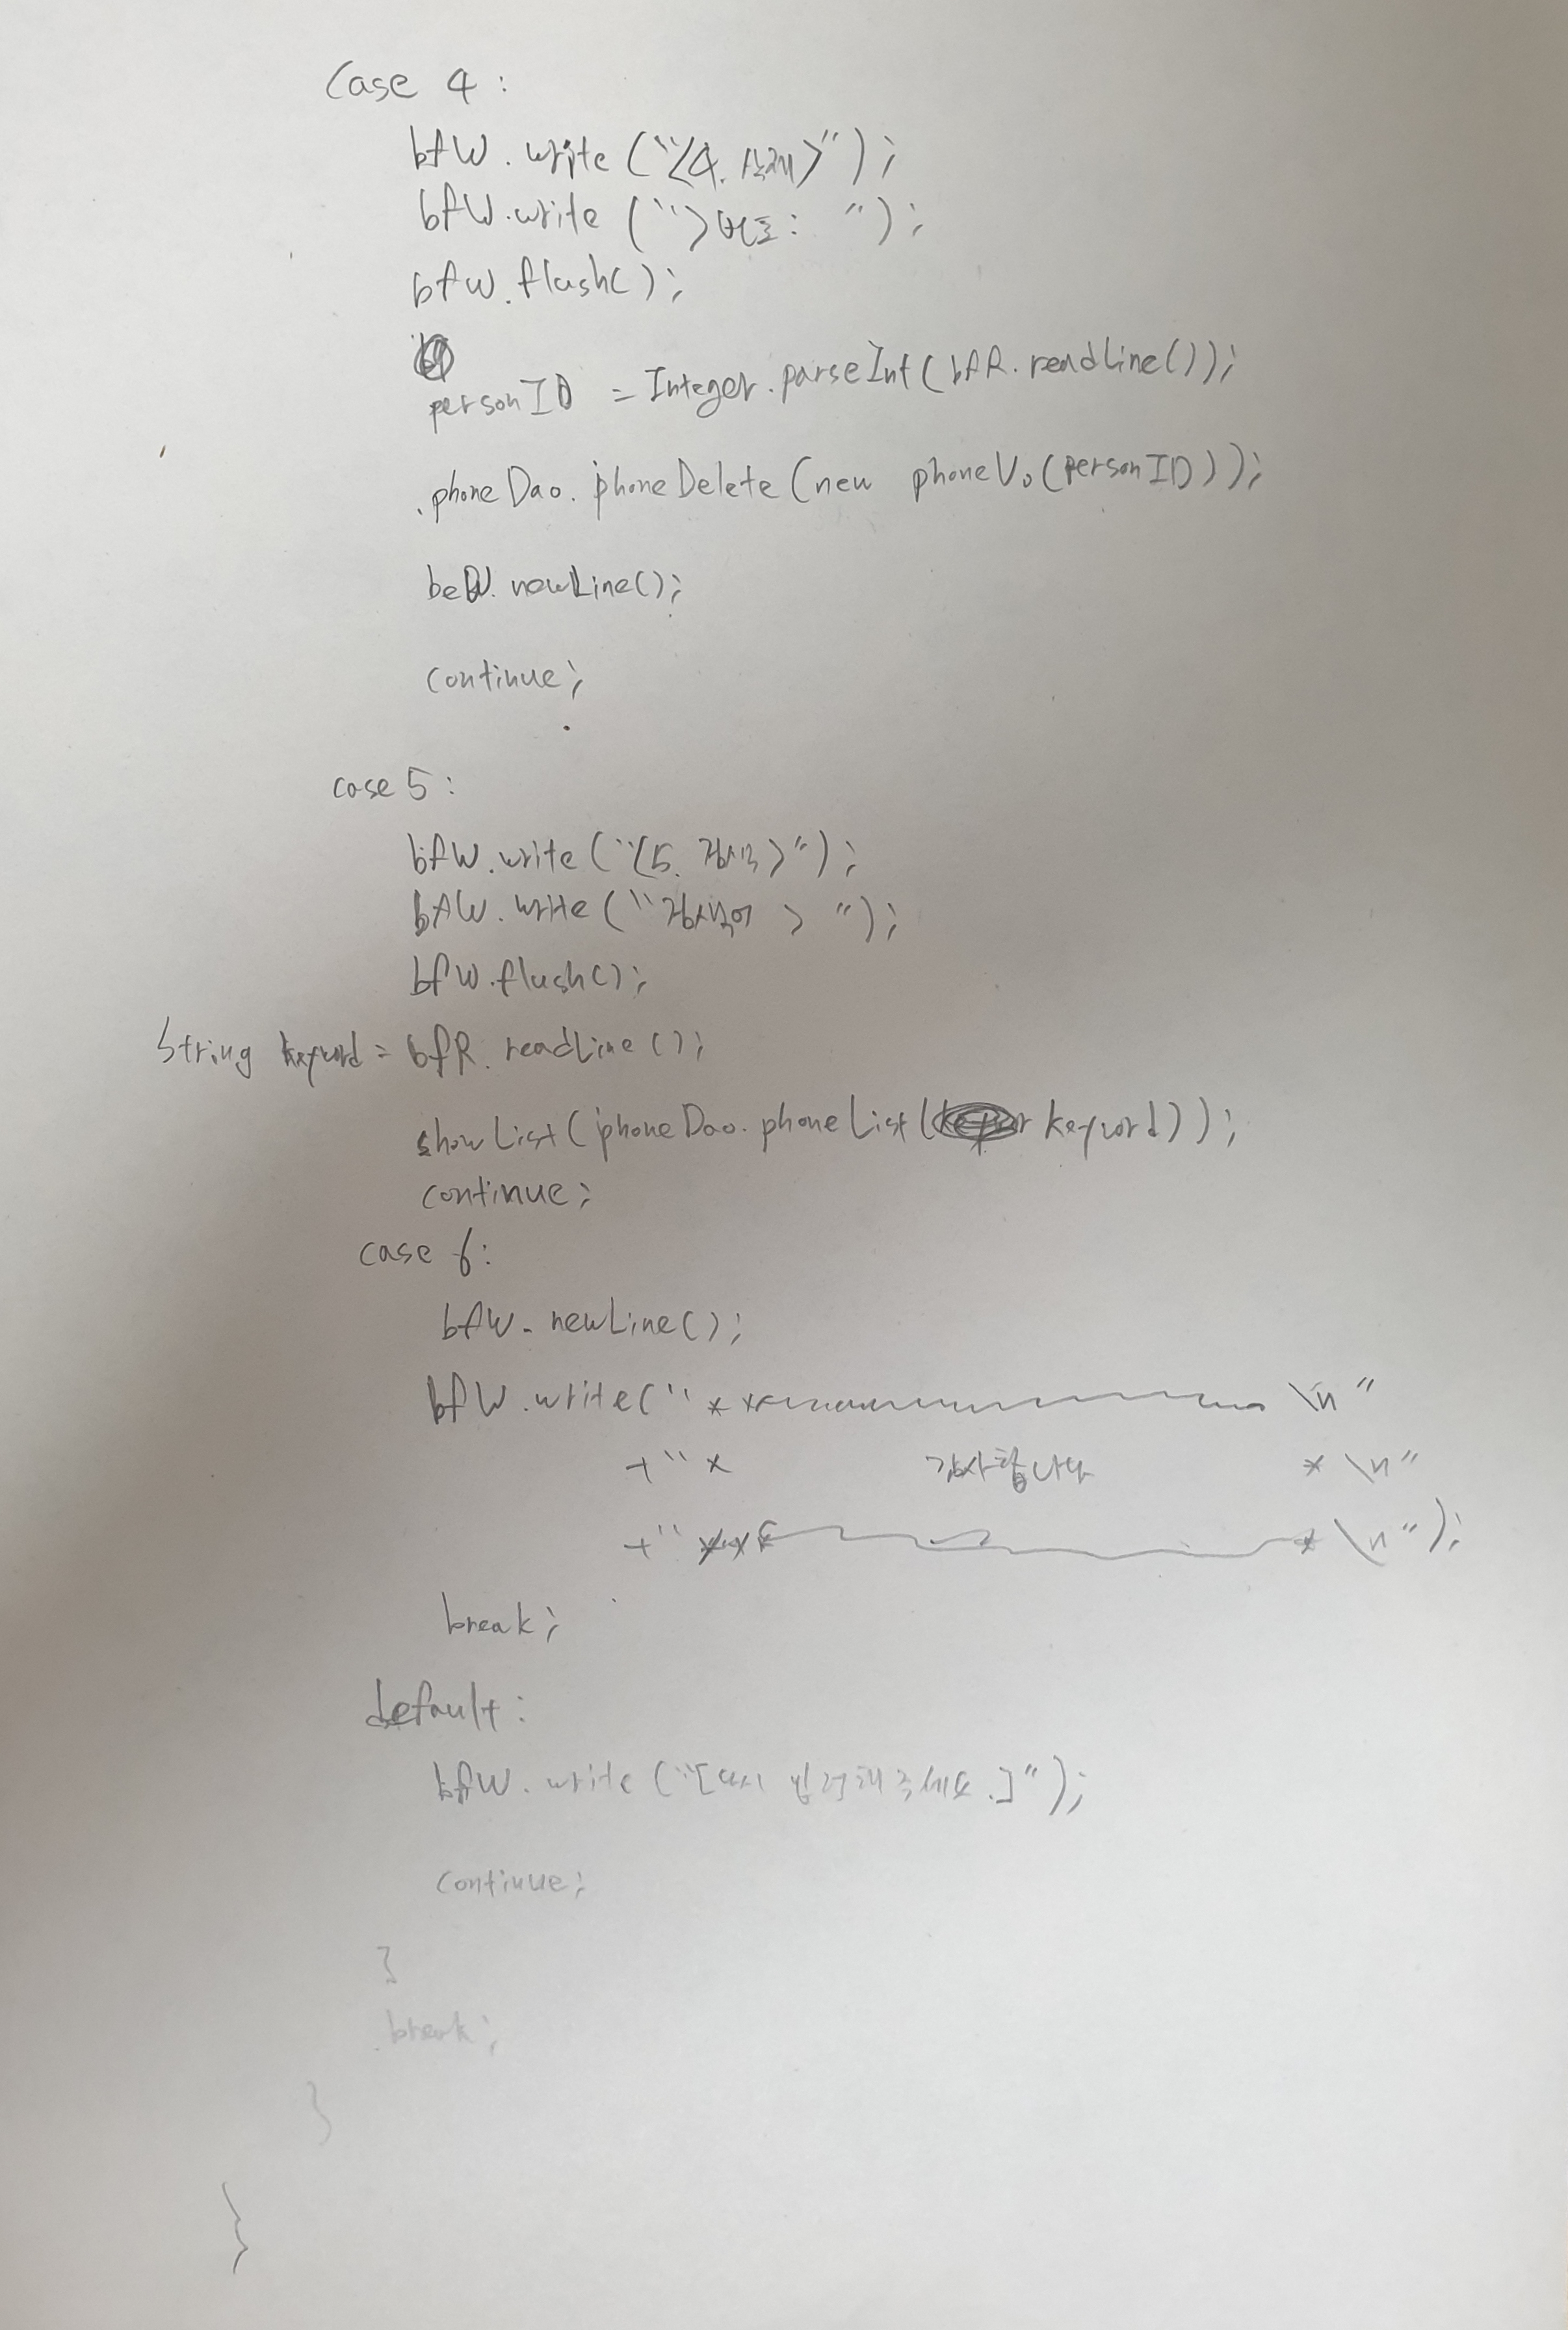 case 4 :
bfW.write("<4. 삭제>");
bfW.write(">번호: ");
bfW.flush();
personID = Integer.parseInt(bfR.readLine());
phoneDao.phoneDelete(new phoneVo(personID));
bfW.newLine();
continue;
case 5 :
bfW.write("<5. 검색>");
bfW.write("검색어 > ");
bfW.flush();
String keyword = bfR.readLine();
showList(phoneDao.phoneList(keyword));
continue;
case 6:
bfW.newLine();
bfW.write("** \n"
+"* 감사합니다 * \n"
+"*** * \n");
break;
default:
bfW.write("[다시 입력해주세요.]");
continue;
}
break;
}
}